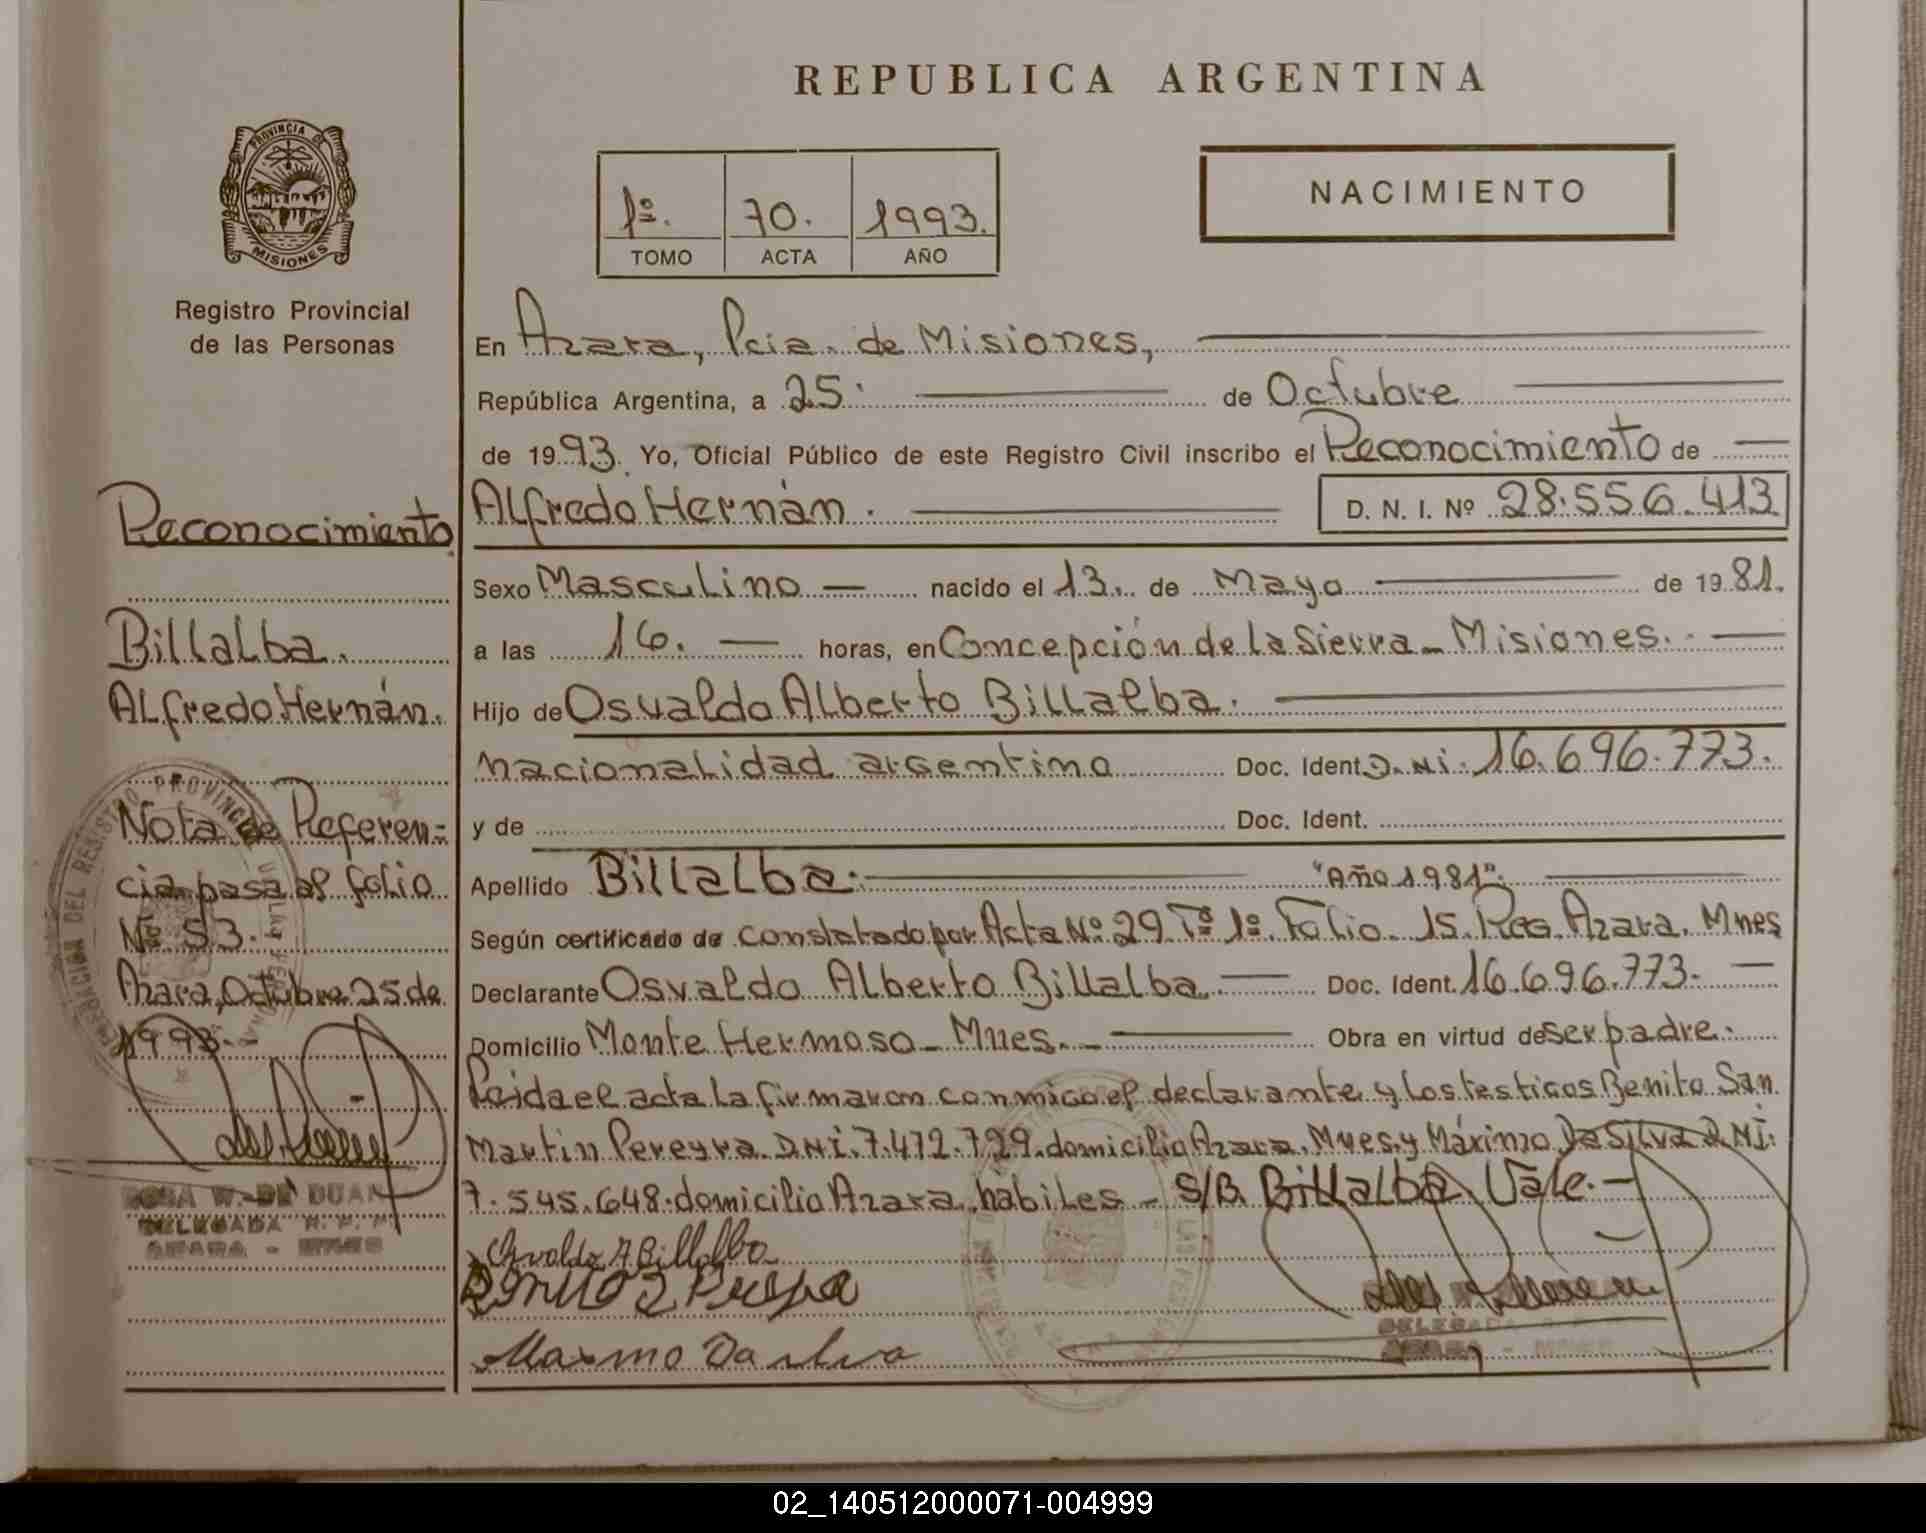 REPUBLICA ARGENTINA
PROVINCIA DE
MISIONES
Registro Provincial
de las Personas
1º. 70. 1993.
TOMO ACTA AÑO
NACIMIENTO
En Azara, Pcia. de Misiones,
República Argentina, a 25. de Octubre
de 1993. Yo, Oficial Público de este Registro Civil inscribo el Reconocimiento de
Alfredo Hernán. D. N. I. Nº 28.556.413
Sexo Masculino nacido el 13. de Mayo de 1981.
a las 16. horas, en Concepción de la Sierra - Misiones.
Hijo de Osvaldo Alberto Billalba.
Nacionalidad argentino Doc. Ident. D.Ni. 16.696.773.
y de Doc. Ident.
Apellido Billalba. "Año 1981".
Según certificado de constatado por Acta Nº 29 Tº 1º. Folio 15. Reg. Azara. Mnes
Declarante Osvaldo Alberto Billalba Doc. Ident. 16.696.773.
Domicilio Monte Hermoso - Mnes. Obra en virtud de ser padre.
Leida el acta la firmaron conmigo el declarante y los testigos Benito San
Martin Pereyra. DNi. 7.472.729. domicilio Azara. Mnes. y Máximo Da Silva D.Ni.
7.545.648. domicilio Azara. hábiles - S/B. Billalba Vale.-
Osvaldo A Billalba
Maxmo Da silva
DELEGADA
Reconocimiento
Billalba.
Alfredo Hernán.
Nota de Referen=
cia pasa al folio
Nº 53.
Azara, Octubre 25 de
1993.-
ROSA W. DE DUAN
DELEGADA
AZARA - MNES
02_140512000071-004999